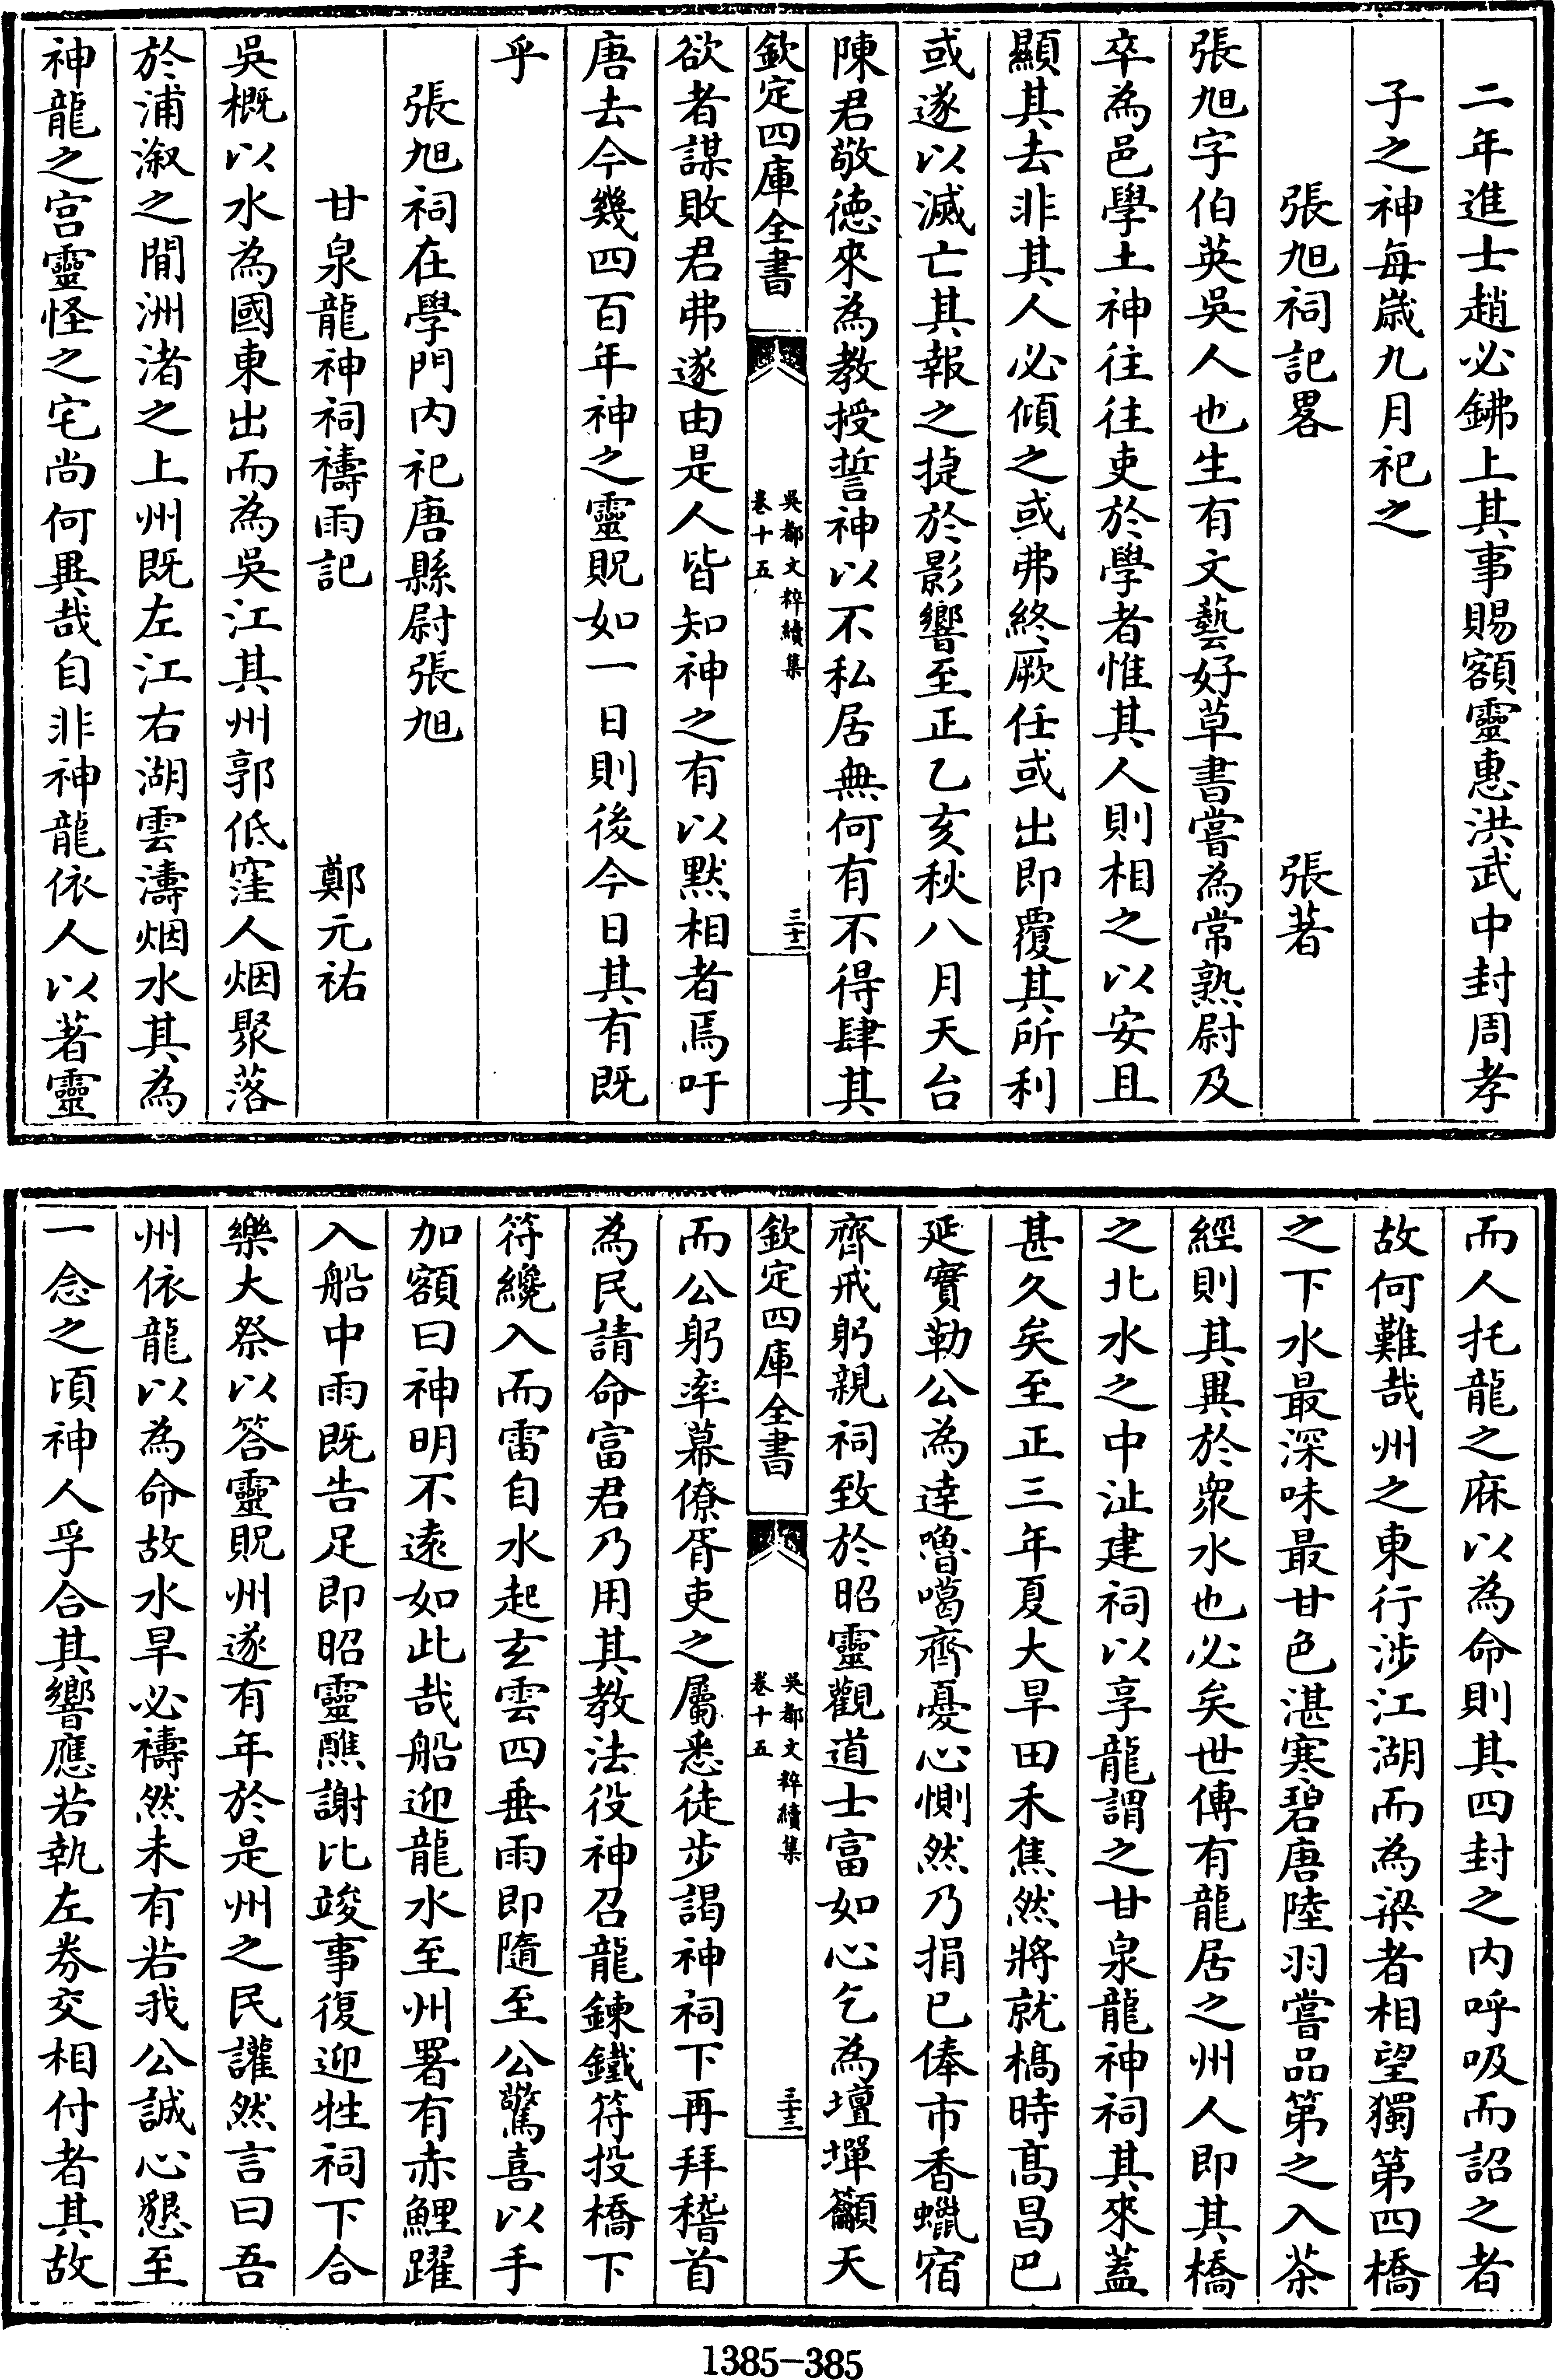 二年進士趙必𨥧上其事賜額靈惠洪武中封周孝
子之神每歲九月祀之
張旭祠記畧 張著
張旭字伯英吳人也生有文藝好草書嘗為常熟尉及
卒為邑學土神往往吏於學者惟其人則相之以安且
顯其去非其人必傾之或弗終厥任或出即覆其所利
或遂以滅亡其報之捷於影響至正乙亥秋八月天台
陳君敬德來為教授誓神以不私居無何有不得肆其
欽定四庫全書 吳都文粹續集 卷十五 三十二
欲者謀敗君弗遂由是人皆知神之有以黙相者焉吁
唐去今幾四百年神之靈貺如一日則後今日其有既
乎
張旭祠在學門内祀唐縣尉張旭
甘泉龍神祠禱雨記 鄭元祐
吳概以水為國東出而為吳江其州郭低窪人烟聚落
於浦溆之間洲渚之上州既左江右湖雲濤烟水其為
神龍之宫靈怪之宅尚何異哉自非神龍依人以著靈
而人托龍之庥以為命則其四封之内呼吸而詔之者
故何難哉州之東行涉江湖而為梁者相望獨第四橋
之下水最深味最甘色湛寒碧唐陸羽嘗品第之入茶
經則其異於衆水也必矣世傳有龍居之州人即其橋
之北水之中沚建祠以享龍謂之甘泉龍神祠其來蓋
甚久矣至正三年夏大旱田禾焦然將就槁時髙昌巴
延實勒公為達嚕噶齊憂心惻然乃捐已俸市香蠟宿
齊戒躬親祠致於昭靈觀道士富如心乞為壇墠籲天
欽定四庫全書 吳都文粹續集 卷十五 三十三
而公躬率幕僚胥吏之屬悉徒步謁神祠下再拜稽首
為民請命富君乃用其教法役神召龍鍊鐵符投橋下
符纔入而雷自水起玄雲四垂雨即隨至公驚喜以手
加額曰神明不逺如此哉船迎龍水至州署有赤鯉躍
入船中雨既告足即昭靈醮謝比竣事復迎牲祠下合
樂大祭以答靈貺州遂有年於是州之民讙然言曰吾
州依龍以為命故水旱必禱然未有若我公誠心懇至
一念之頃神人孚合其響應若執左券交相付者其故
1385-385